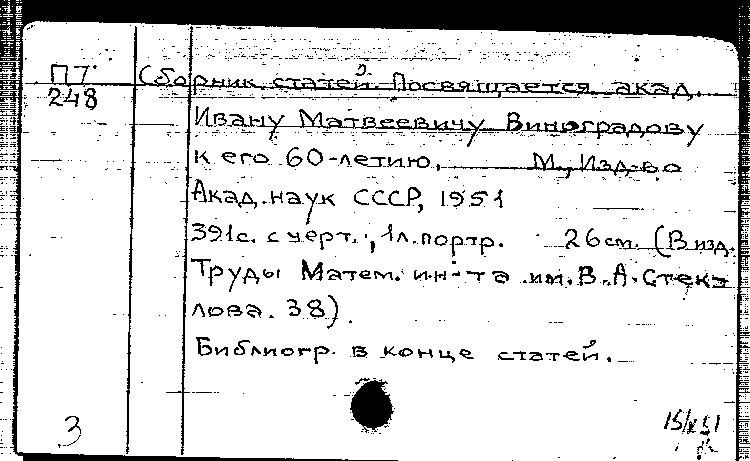 П7 Сборник статей. Посвящается акад.
248
Ивану Матвеевичу Виноградову
к его 60-летию. М., Изд-во
Акад. наук СССР, 1951
391с. с черт.; 1л. портр. 26см. (В изд.
Труды Матем. ин-та им. В.А. Стек-
лова. 38).
Библиогр. в конце статей.
3